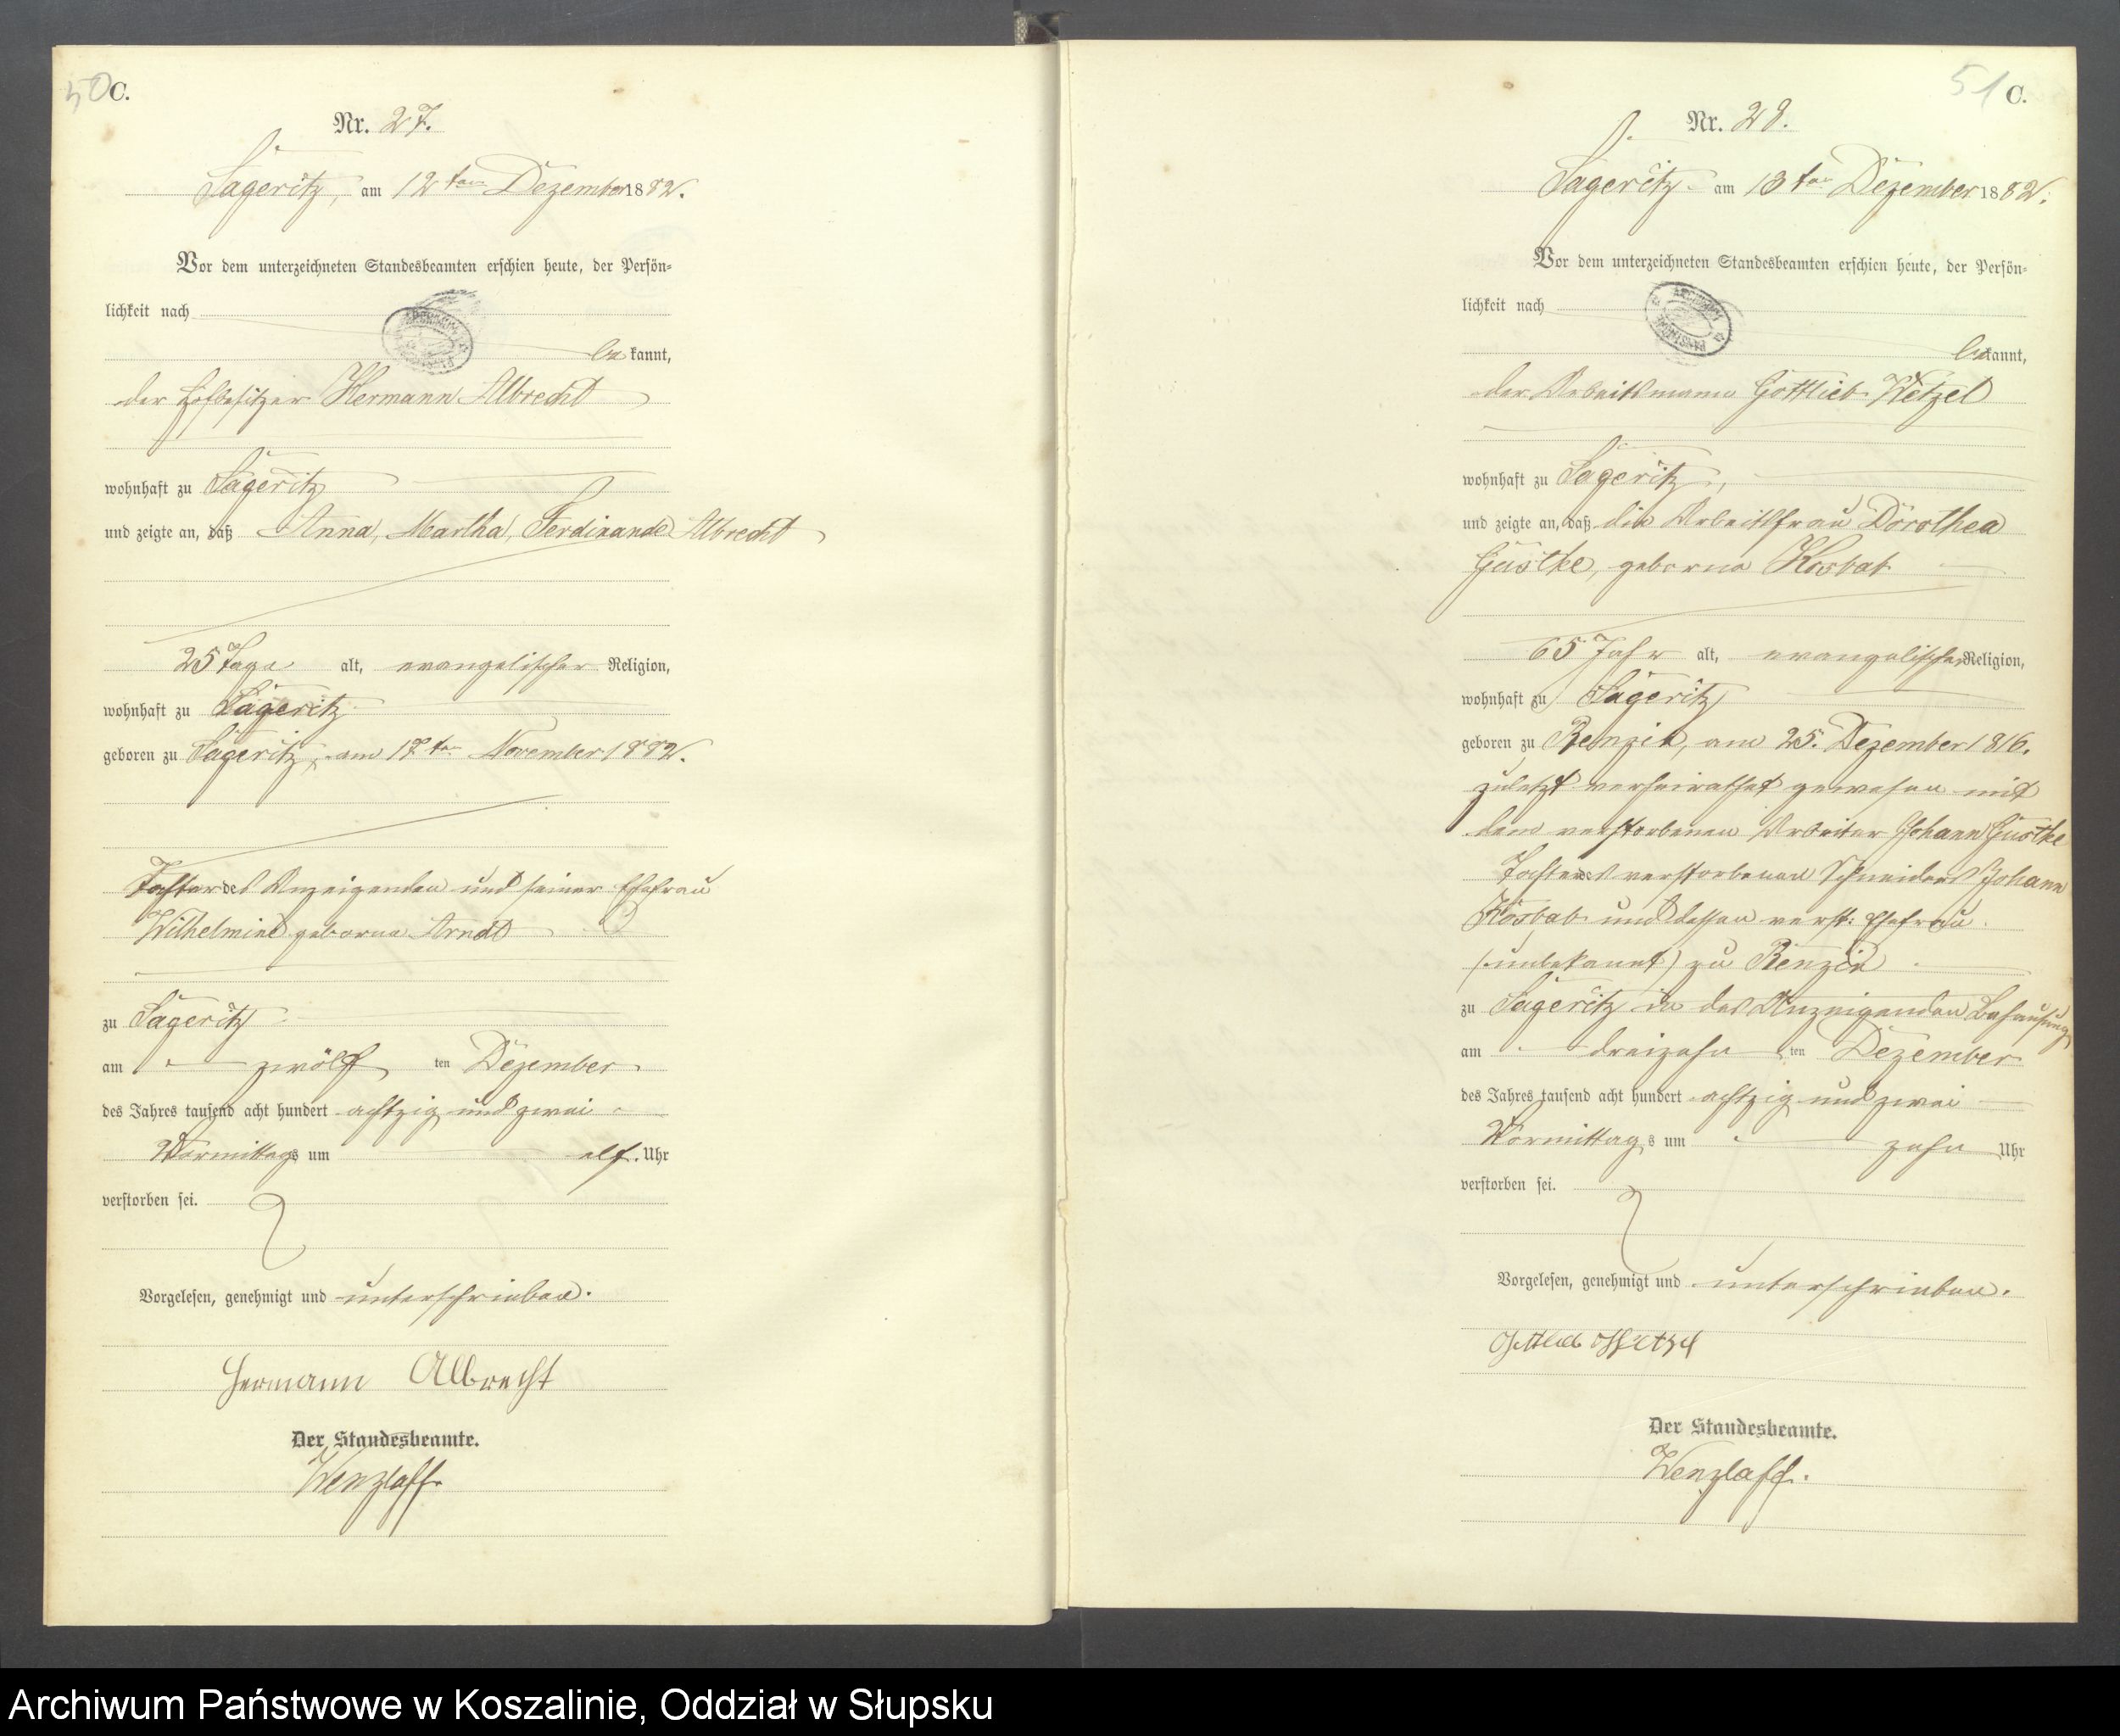 50 C.
Nr. 27.
Sageritz, am 12ten Dezember 1882.
Vor dem unterzeichneten Standesbeamten erschien heute, der Persön-
lichkeit nach
bekannt,
der Hofbesitzer Hermann Albrecht
wohnhaft zu Sageritz
und zeigte an, daß Anna, Martha, Ferdinande Albrecht
25 Tage alt, evangelischer Religion,
wohnhaft zu Sageritz
geboren zu Sageritz, am 17ten November 1882.
Tochter des Anzeigenden und seiner Ehefrau
Wilhelmine geborne Arndt
zu Sageritz
am zwölf ten Dezember
des Jahres tausend acht hundert achtzig und zwei
Vormittags um elf Uhr
verstorben sei.
Vorgelesen, genehmigt und unterschrieben.
Hermann Albrecht
Der Standesbeamte.
Wenzlaff.
51 C.
Nr. 28.
Sageritz am 13ten Dezember 1882.
Vor dem unterzeichneten Standesbeamten erschien heute, der Persön-
lichkeit nach
bekannt,
der Arbeitsmann Gottlieb Wetzel
wohnhaft zu Sageritz,
und zeigte an, daß die Arbeitsfrau Dorothea
Güstke, geborne Kosbab
65 Jahr alt, evangelischer Religion,
wohnhaft zu Sageritz
geboren zu Benzin, am 25. Dezember 1816.
zuletzt verheirathet gewesen mit
dem verstorbenen Arbeiter Johann Güstke
Tochter des verstorbenen Schneiders Johann
Kosbab und dessen verst: Ehefrau
(unbekannt) zu Benzin
zu Sageritz in des Anzeigenden Behausung
am dreizehn ten Dezember
des Jahres tausend acht hundert achtzig und zwei
Vormittags um zehn Uhr
verstorben sei.
Vorgelesen, genehmigt und unterschrieben.
Gottlieb Wetzel
Der Standesbeamte.
Wenzlaff.
Archiwum Państwowe w Koszalinie, Oddział w Słupsku